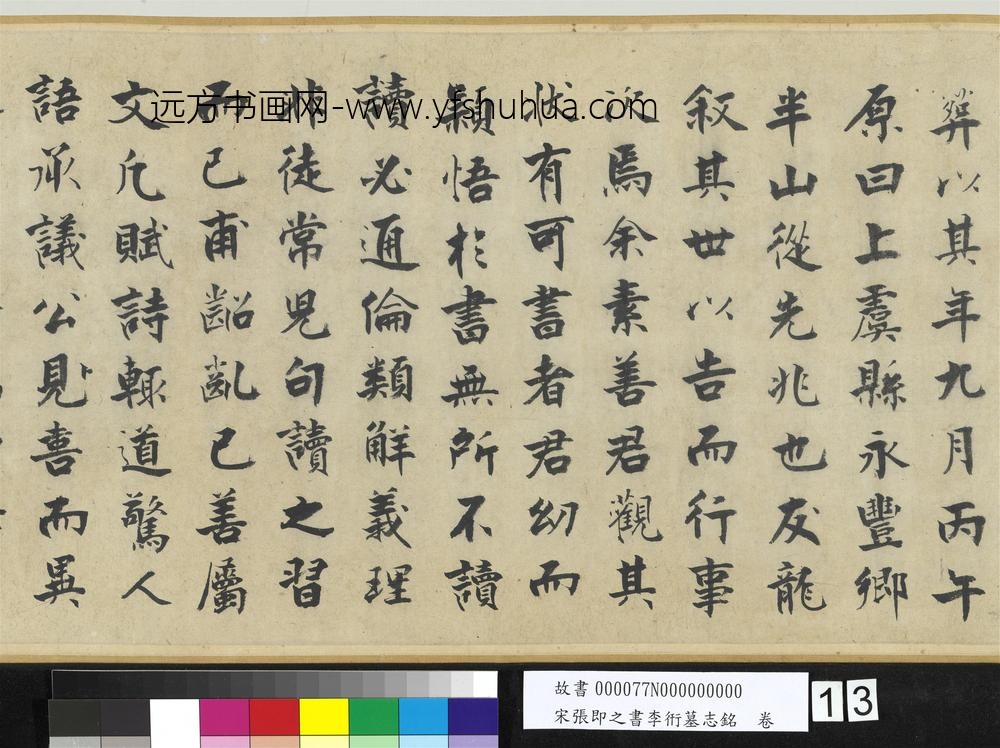 葬以其年九月丙午
原曰上虞縣永豐鄉
半山從先兆也友龍
敘其世以告而行事
焉余素善君觀其
狀有可書者君幼而
穎悟於書無所不讀
讀必通倫類解義理
徒常兒句讀之習
已甫齠齔已善屬
文凡賦詩輒道驚人
語承議公見喜而異
远方书画网-www.yfshuhua.com
故書 000077N000000000
宋張即之書李衎墓志銘 卷
13